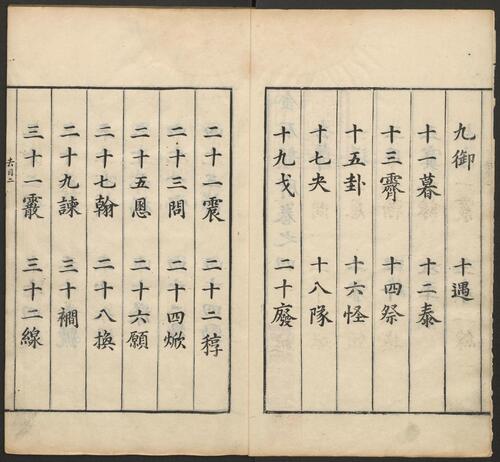 九御 十遇
十一暮 十二泰
十三霽 十四祭
十五卦 十六怪
十七夬 十八隊
十九戈 二十廢
二十一震 二十二稕
二十三問 二十四焮
二十五慁 二十六願
二十七翰 二十八換
二十九諫 三十襉
三十一霰 三十二線
去目二